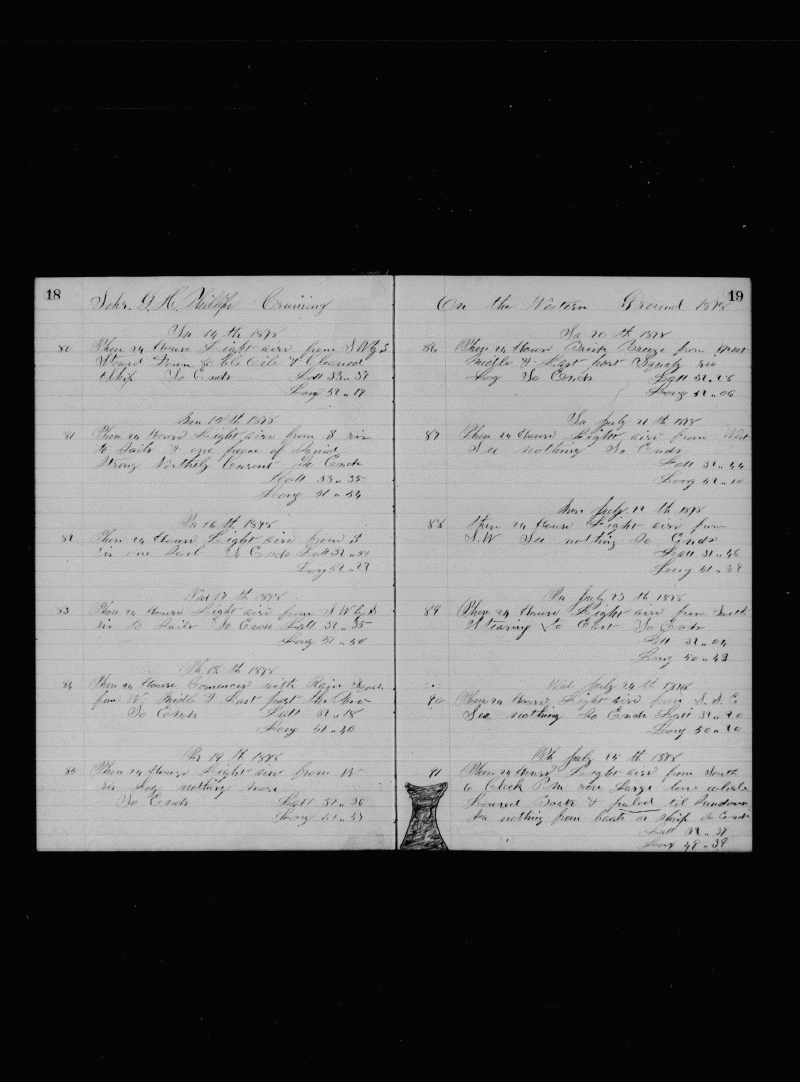 18
Schr. G. H. Phillips Cruising
Su 14 th 1878
80 These 24 Hours Light airs from S W by S
Stowed down Bbls Oile & Cleaned
Ship So Ends Latt 33 " 37
Long 52 " 19
Mon 15 th 1878
81 These 24 Hours Light airs from S
Sails & one
Strong Northly Current So Ends
Latt 33 " 35
Long 51 " 54
16 th 1878
82 These 24 Hours Light airs from S
one Sail So Ends Latt 32 " 51
Long 52 " 27
Wed 17 th 1878
83 These 24 Hours Light airs from S W by S
Sails So Ends Latt 32 " 35
Long 51 " 50
Th 18 th 1878
84 These 24 Hours Comences with Rain
from W Middle & Last part
So Ends Latt 32 " 18
Long 51 " 40
Fr 19 th 1878
85 These 24 Hours Light airs from W
nothing more
So Ends Latt 32 " 36
Long 51 " 47
19
On the Western Ground 1878
Sa 20 th 1878
86 These 24 Hours Brisk Breeze from West
Middle & Last part
So Ends Latt 32 " 28
Long 52 " 06
Su July 21 th 1878
87 These 24 Hours Light airs from West
See nothing So Ends
Latt 32 " 44
Long 52 " 10
Mon July 22 th 1878
88 These 24 Hours Light airs from
S.W See nothing So Ends
Latt 31 " 46
Long 51 " 39
July 23 th 1878
89 These 24 Hours Light airs from South
Stearing to East So Ends
Latt 32 " 04
Long 50 " 43
Wed July 24 th 1878
90 These 24 Hours Light airs from S.S.E
See nothing So Ends Latt 32 " 20
Long 50 " 20
Th July 25 th 1878
91 These 24 Hours Light airs from South
6 Clock P.M. Large lone whale
Lowered Boats & til Sundown
nothing from boats or Ship So Ends
Latt 32 " 37
Long 49 " 39